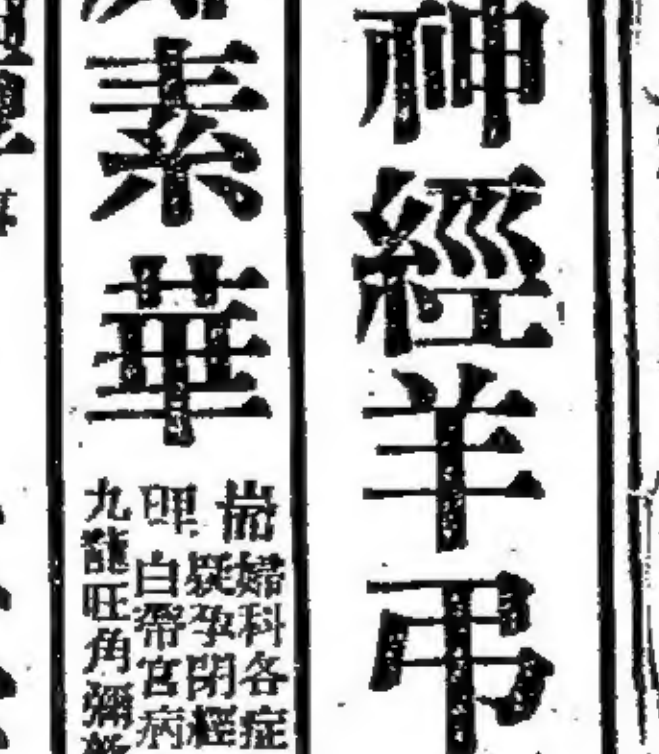 神經羊弔
素華
婦科各症
疑孕閉經
白帶宮病
九龍旺角彌